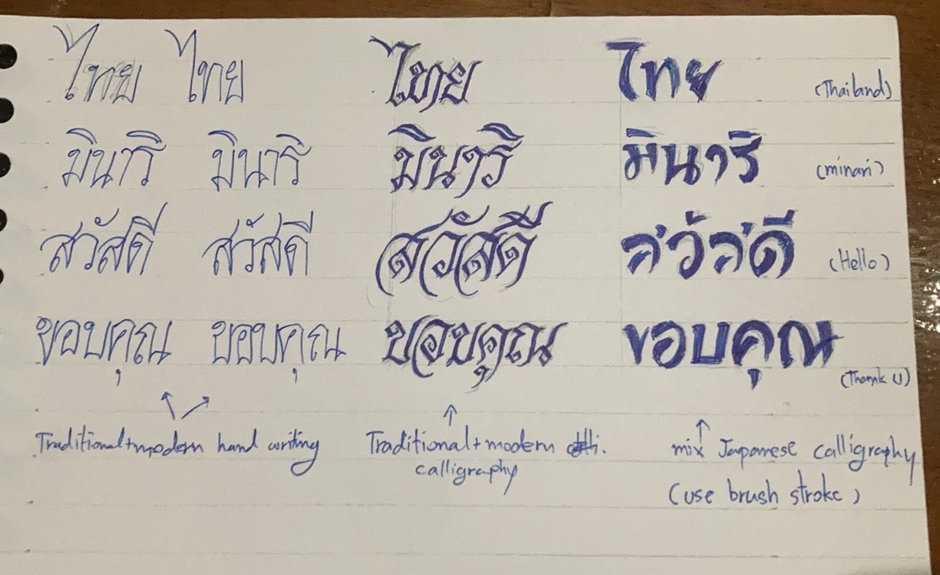 ไทย ไทย ไทย ไทย (Thailand)
มินารี มินาริ มินาริ มินาริ (minari)
สวัสดี สวัสดี สวัสดี สวัสดี (Hello)
ขอบคุณ ขอบคุณ ขอบคุณ ขอบคุณ (Thank U)
Traditional+modern hand writing
Traditional+modern
calligraphy
mix Japanese calligraphy
(use brush stroke)